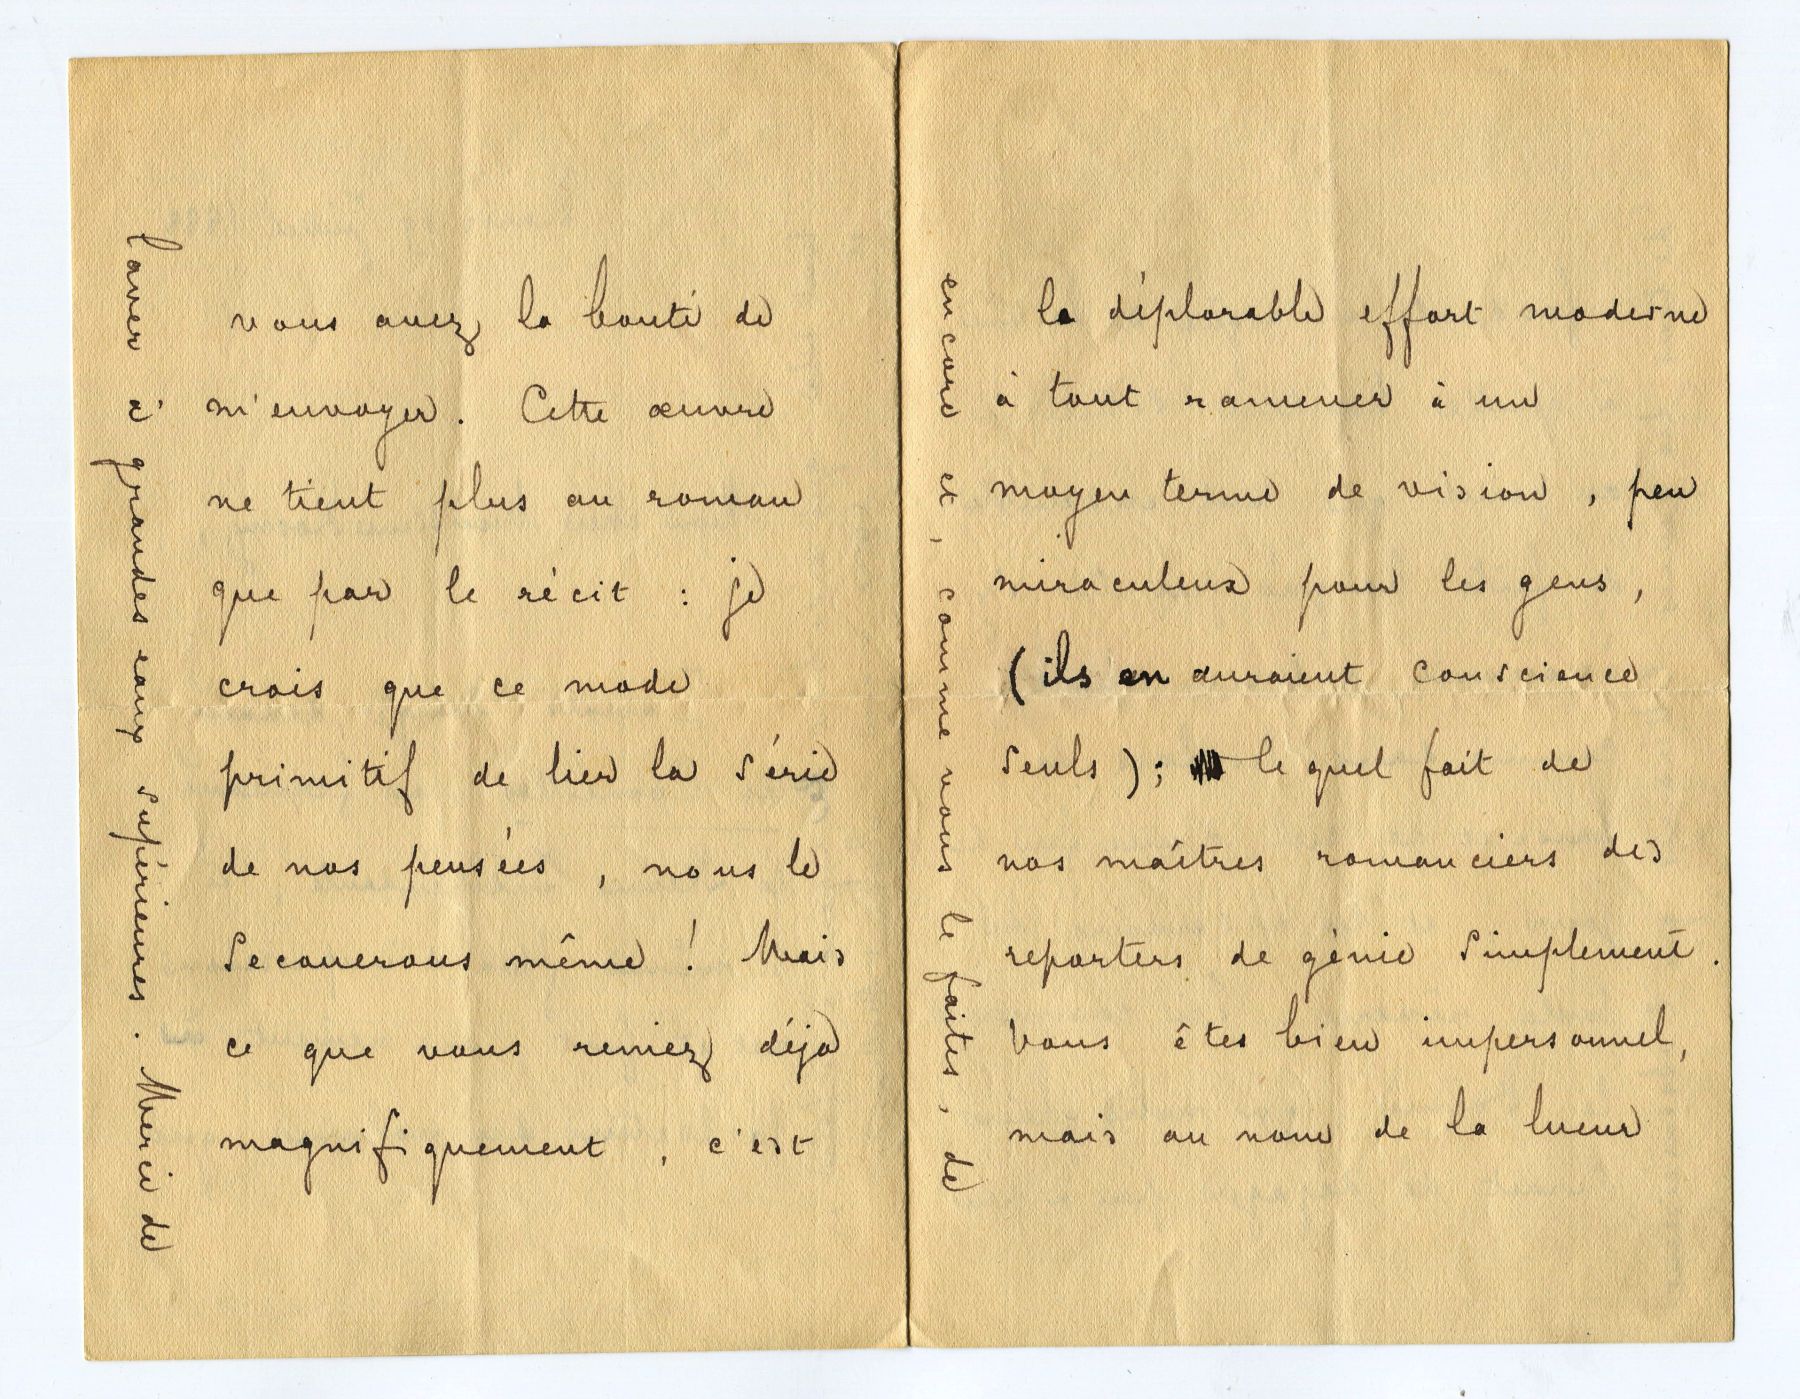 vous avez la bonté de
m'envoyer. Cette œuvre
ne tient plus au roman
que par le récit : je
crois que ce mode
primitif de lier la série
de nos pensées, nous le
secouerons même ! Mais
ce que vous reniez déjà
magnifiquement, c'est
la déplorable effort moderne
à tout ramener à un
moyen terme de vision, peu
miraculeux pour les gens,
(ils en auraient conscience
seuls) ; lequel fait de
nos maîtres romanciers des
reporters de génie simplement.
Vous êtes bien impersonnel,
mais au nom de la lueur
encore et, comme vous le faites, de
laver à grandes eaux supérieures. Merci de